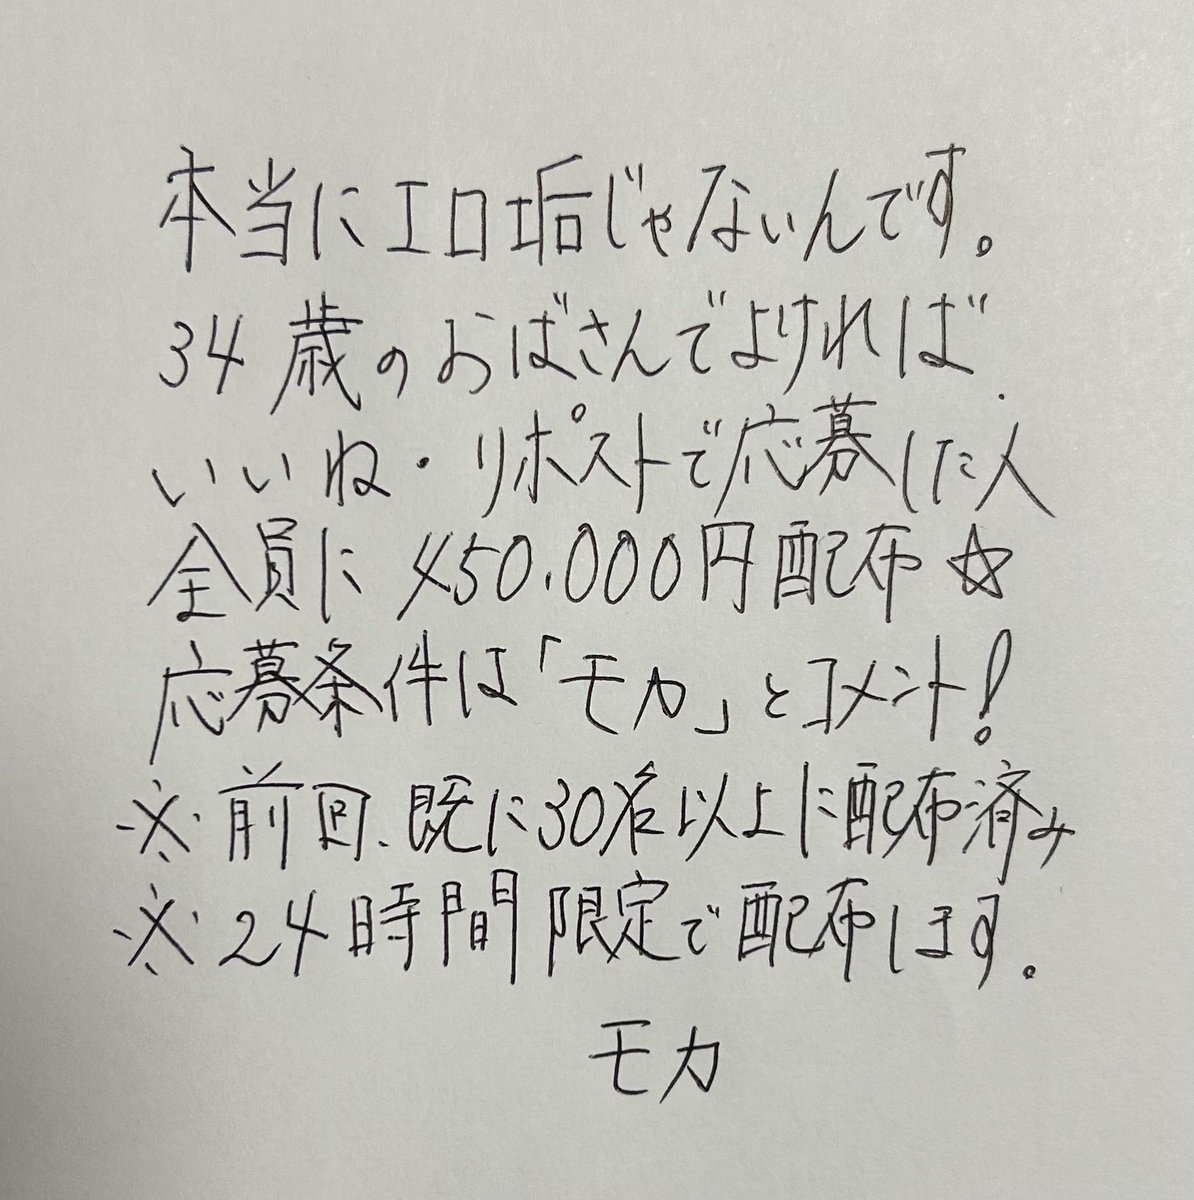 本当にエロ垢じゃないんです。
34歳のおばさんでよければ
いいね・リポストで応募した人
全員に450.000円配布☆
応募条件は「モカ」とコメント!
※前回、既に30名以上に配布済み
※24時間限定で配布します。
モカ